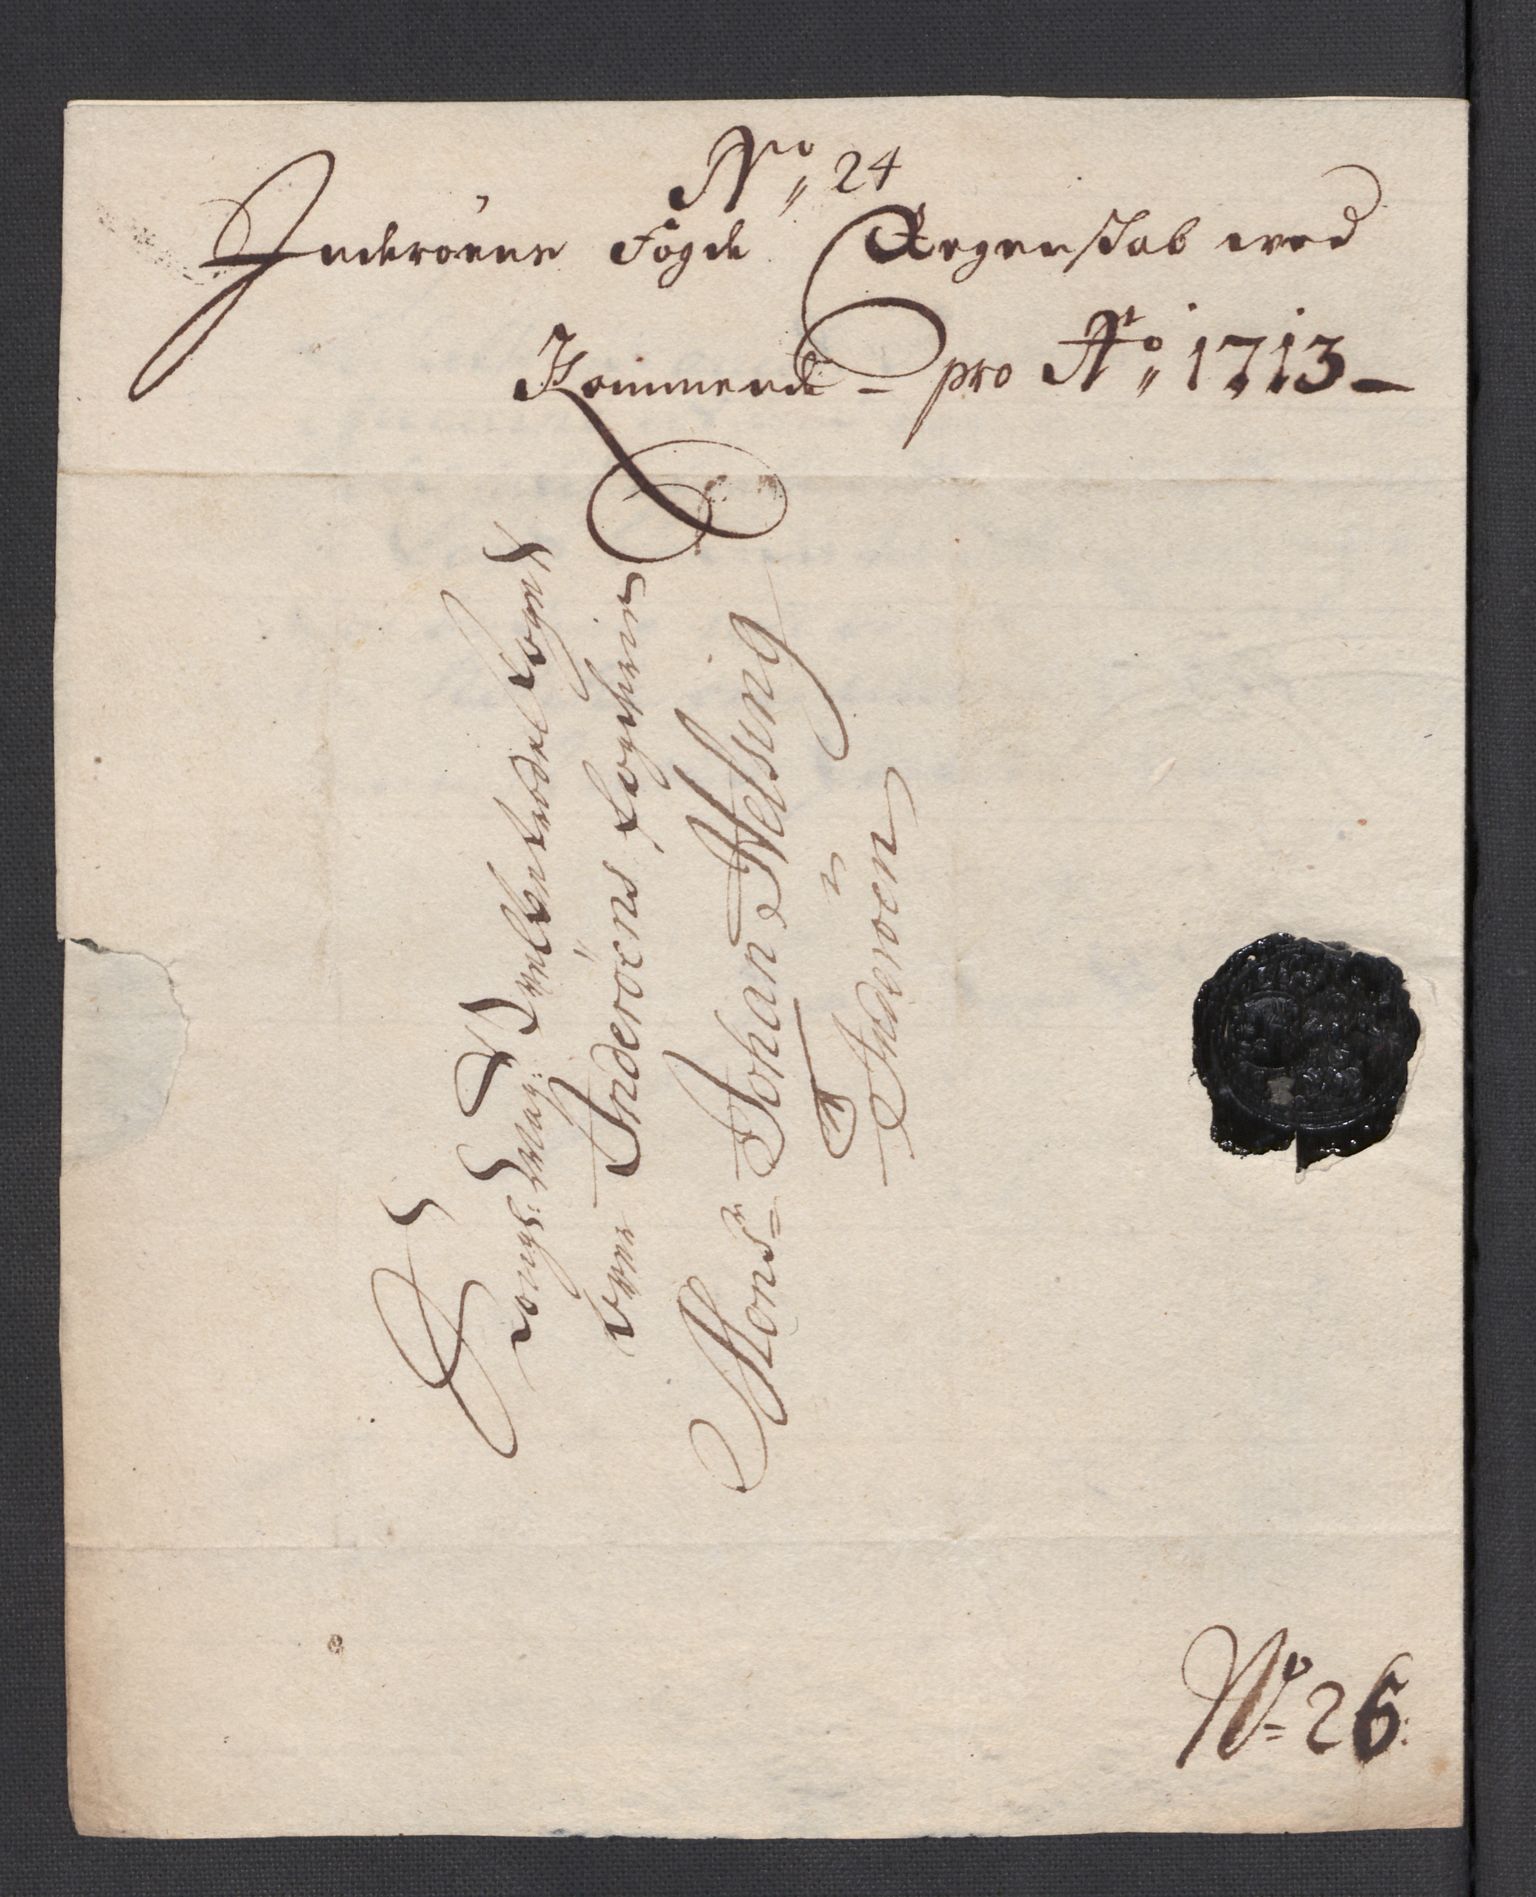 No 24
Inderöens Fogde Regenskab ved
Kommende - pro Ao 1713 -
Kongl: May: Velbetrode Fogat
over Inderöens Fogderie
Monsr Johan Helsing
á
Inderöen
No 26